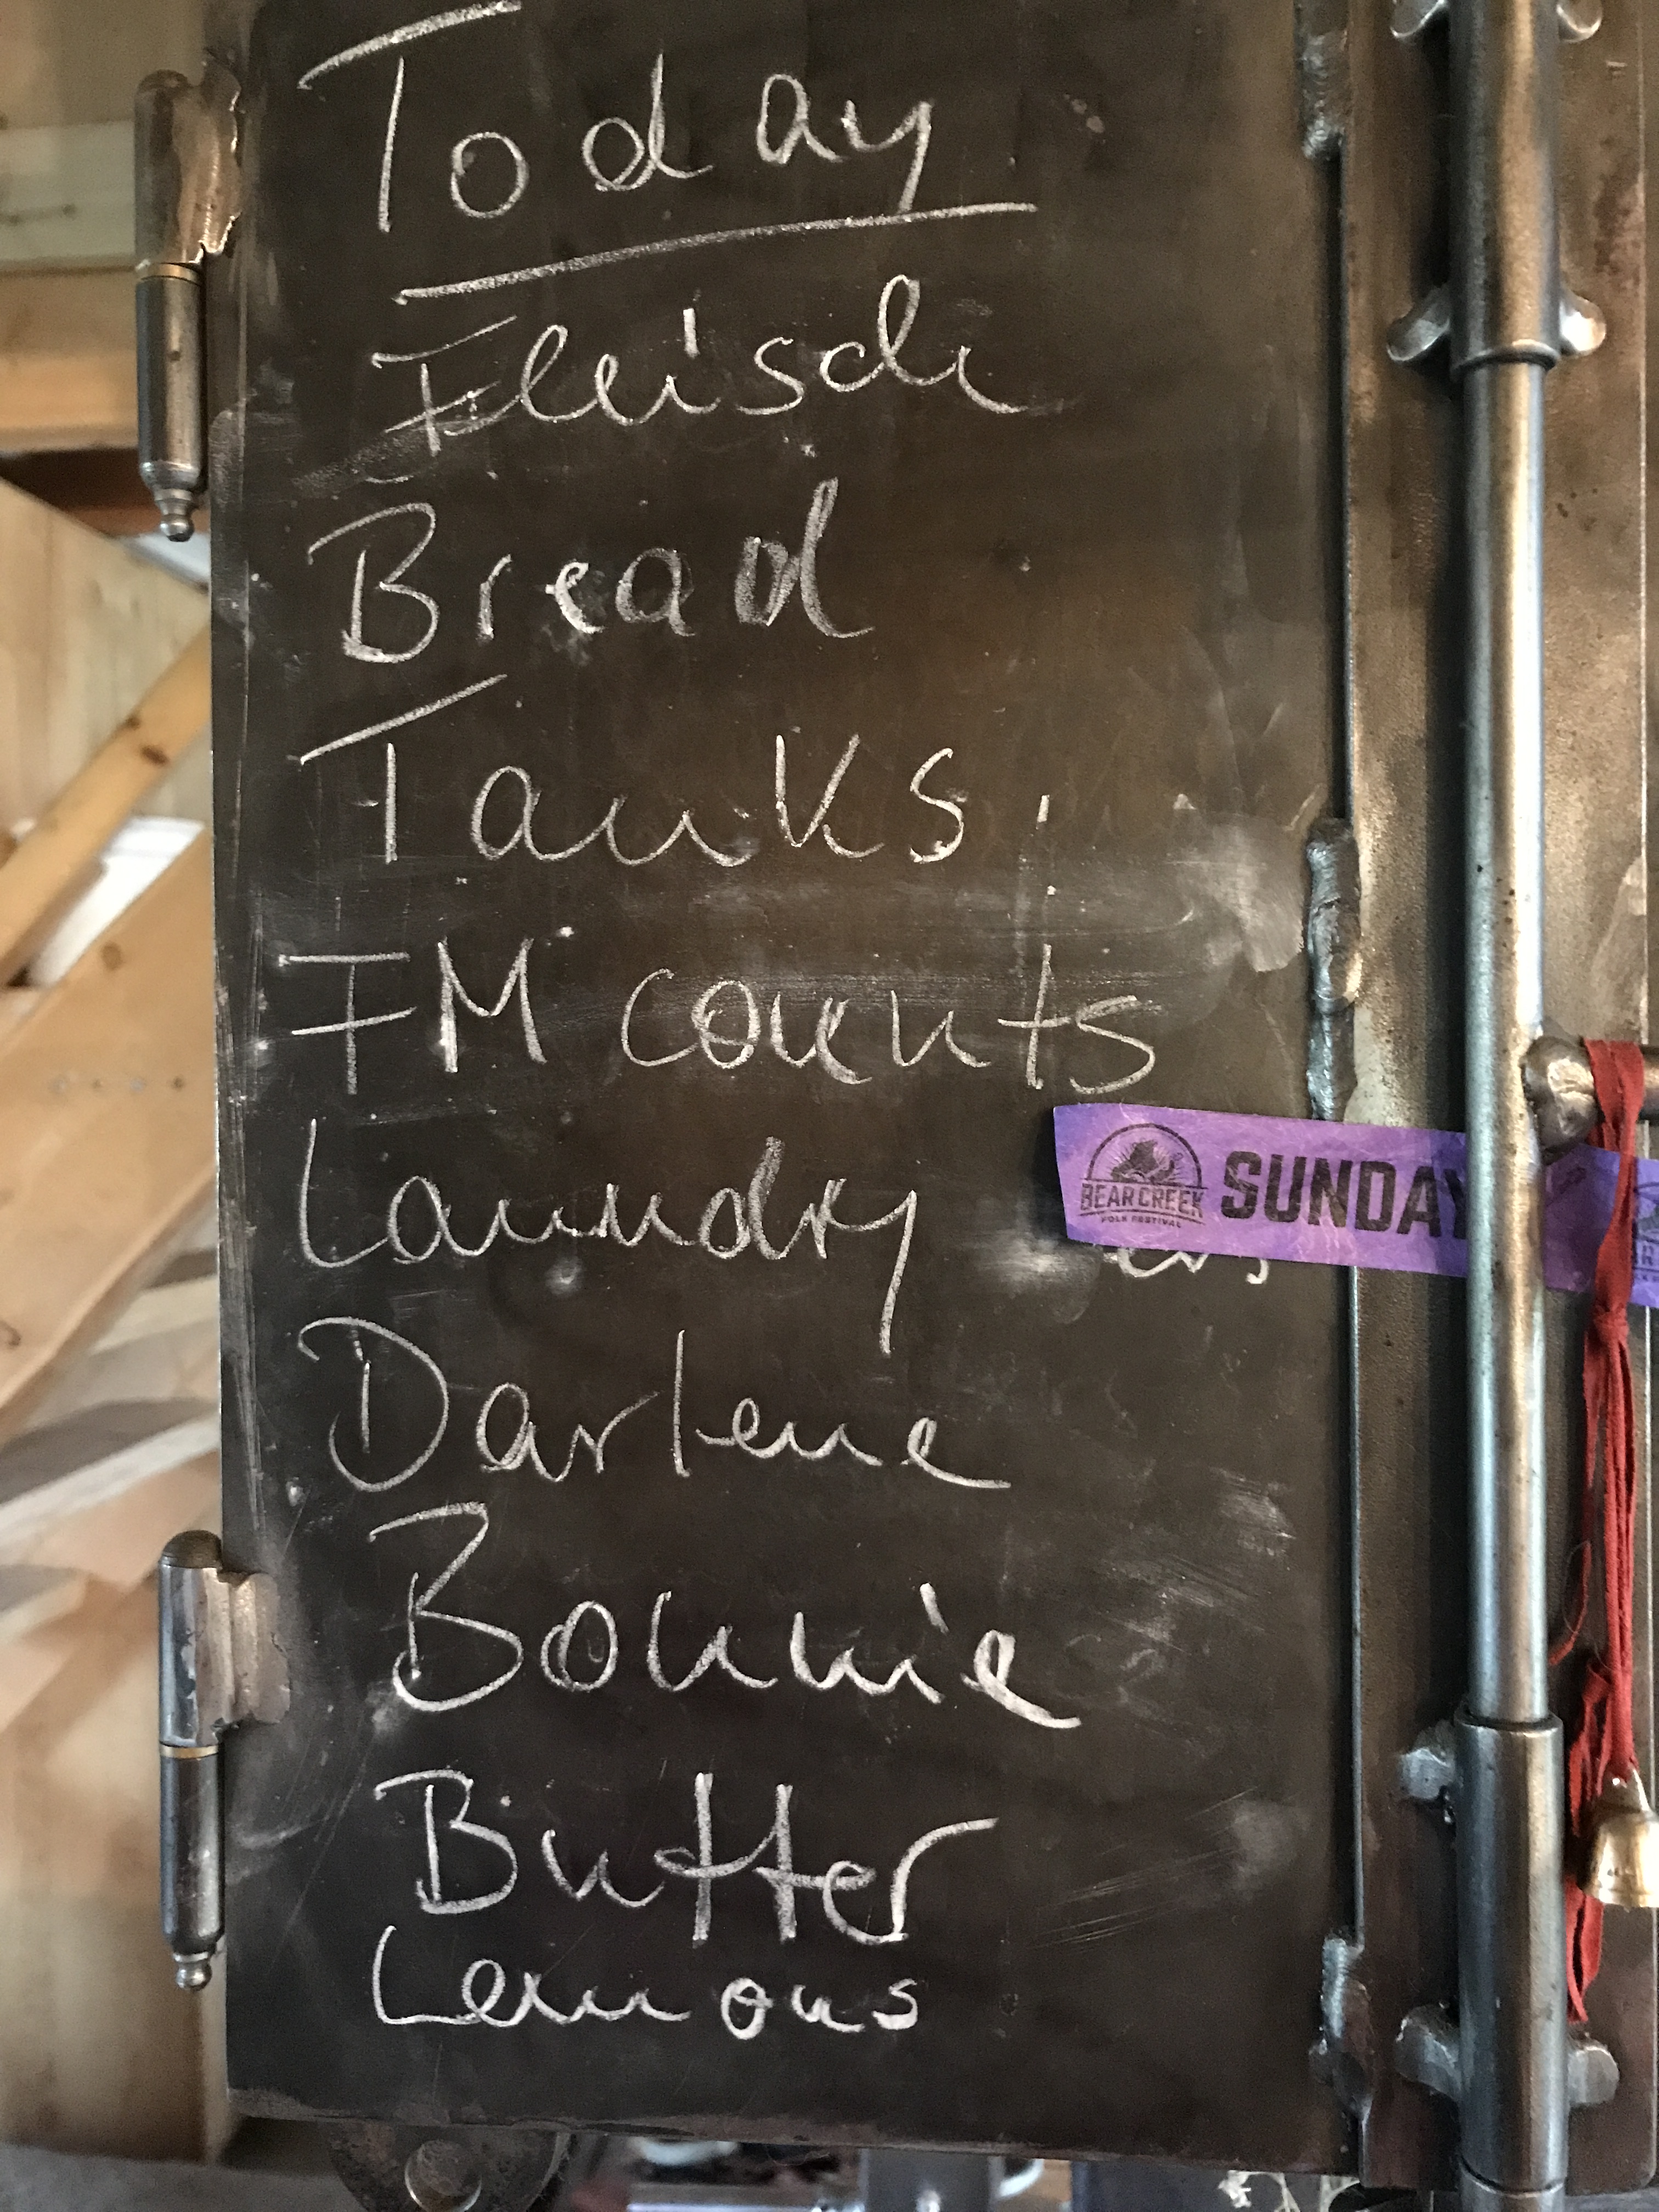 Today
Fleisch
Bread
Tanks
FM counts
Laundry
BEAR CREEK
FOLK FESTIVAL
SUNDAY
Darlene
Bonnie
Butter
Lemons